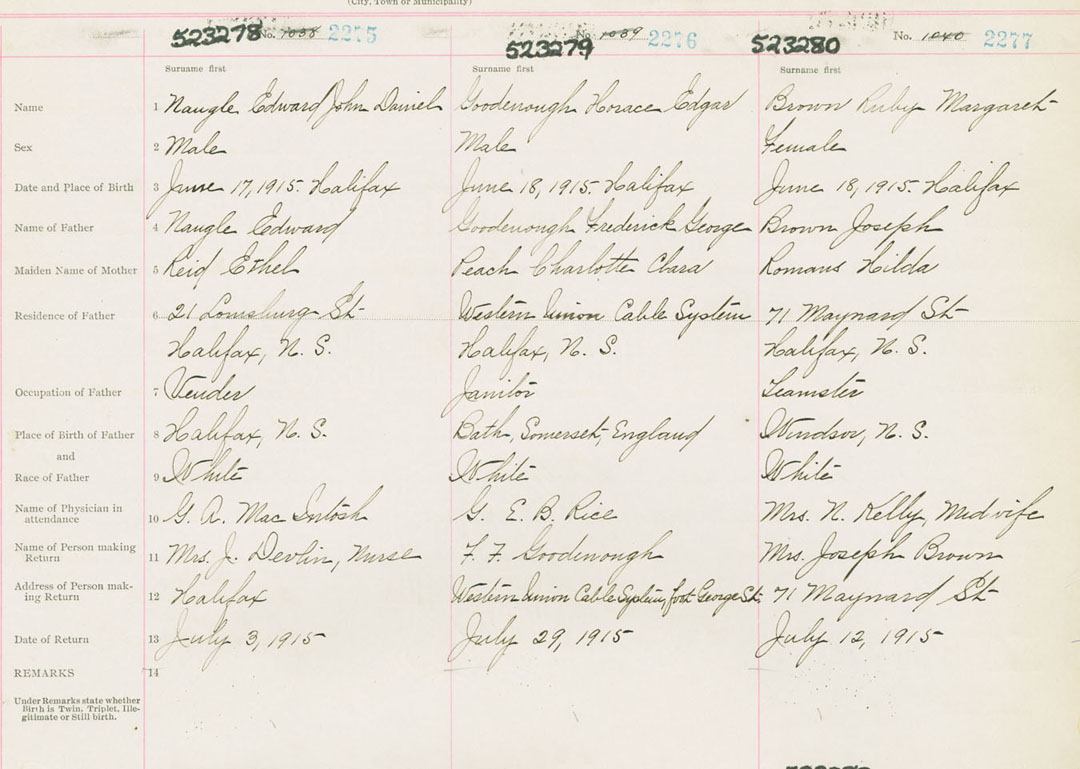 (City, Town or Municipality)
523278 No. 1038 2275 523279 No. 1039 2276 523280 No. 1040 2277
Surname first Surname first Surname first
Name 1 Naugle Edward John Daniel Goodenough Horace Edgar Brown Ruby Margaret
Sex 2 Male Male Female
Date and Place of Birth 3 June 17, 1915. Halifax June 18, 1915. Halifax June 18, 1915. Halifax
Name of Father 4 Naugle Edward Goodenough Frederick George Brown Joseph
Maiden Name of Mother 5 Reid Ethel Peach Charlotte Clara Romans Hilda
Residence of Father 6 21 Louisburg St Western Union Cable System 71 Maynard St
Halifax, N. S. Halifax, N. S. Halifax, N. S.
Occupation of Father 7 Vender Janitor Teamster
Place of Birth of Father 8 Halifax, N. S. Bath, Somerset, England Windsor, N. S.
and
Race of Father 9 White White White
Name of Physician in
attendance 10 G. A. Mac Intosh G. E. B. Rice Mrs. N. Kelly, Midwife
Name of Person making
Return 11 Mrs. J. Devlin, Nurse F. F. Goodenough Mrs. Joseph Brown
Address of Person mak-
ing Return 12 Halifax Western Union Cable System, foot George St. 71 Maynard St
Date of Return 13 July 3, 1915 July 29, 1915 July 12, 1915
REMARKS 14
Under Remarks state whether
Birth is Twin, Triplet, Ille-
gitimate or Still birth.